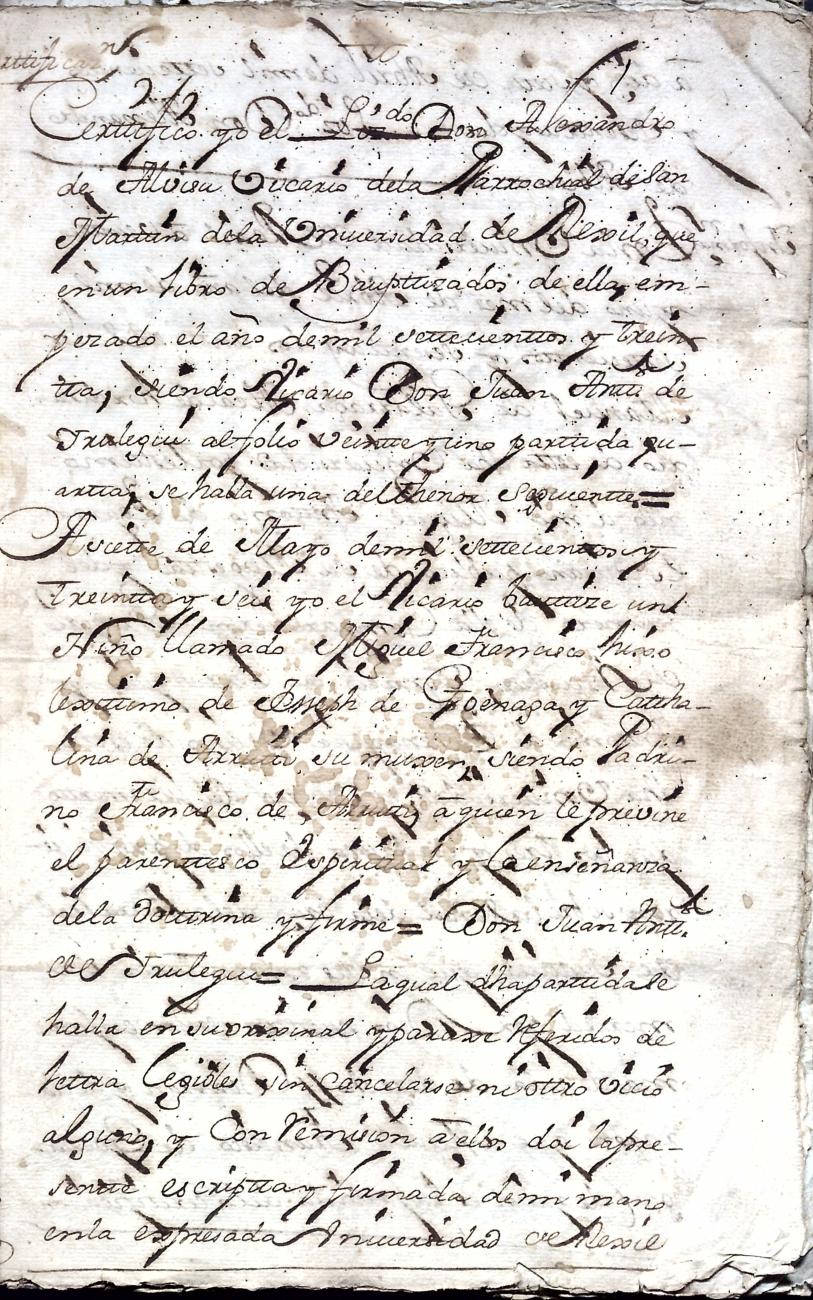 Certtifico yo el Lizdo. Don Alexandro
de Alvisu Vicario dela Parrochial de San
Martin dela Universidad de Rexil, que
en un libro de Bauptizados de ella, em-
pezado el año demil settecienttos y trein-
tta, siendo Vicario Don Juan Antto. de
Irulegui al folio veintte y uno partida qu-
artta, se halla una del thenor seguientte =
A siette de Mayo demil settecienttos y
treintta y seis yo el Vicario bauttize un
Niño llamado Miguel Francisco hixo
lexittimo de Joseph de Goenaga y Cattha-
lina de Arrutti su muxer, siendo Padri-
no Francisco de Arrutti, a quien le previne
el parenttesco Espiritual y la enseñanza
dela Docttrina y firme = Don Juan Antto.
de Irulegui = La qual dha parttida se
halla en su orixinal y paraxe referidos de
lettra legibles sin cancelarse ni ottro vicio
alguno, y Con remision a ellos doi la pre-
sentte escriptta y firmada de mi mano
en la expresada Universidad de Rexil